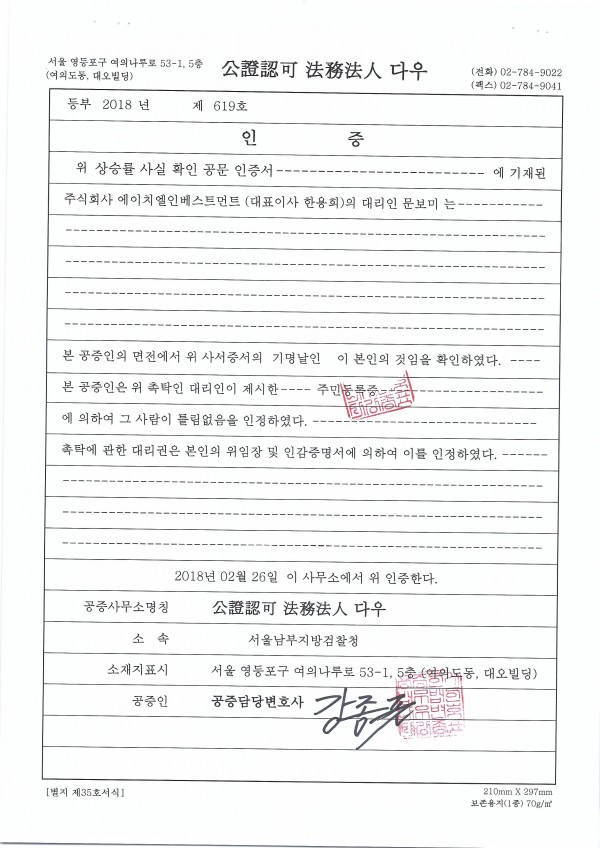 서울 영등포구 여의나루로 53-1, 5층
(여의도동, 대오빌딩)
公證認可 法務法人 다우
(전화) 02-784-9022
(팩스) 02-784-9041
등부 2018 년 제 619호
인 증
위 상승률 사실 확인 공문 인증서------------------------- 에 기재된
주식회사 에이치엘인베스트먼트 (대표이사 한용희)의 대리인 문보미 는-----------
본 공증인의 면전에서 위 사서증서의 기명날인 이 본인의 것임을 확인하였다. ----
본 공증인은 위 촉탁인 대리인이 제시한---- 주민등록증--------------------
에 의하여 그 사람이 틀림없음을 인정하였다. ---------------------------
촉탁에 관한 대리권은 본인의 위임장 및 인감증명서에 의하여 이를 인정하였다. ------
2018년 02월 26일 이 사무소에서 위 인증한다.
공증사무소명칭 公證認可 法務法人 다우
소 속 서울남부지방검찰청
소재지표시 서울 영등포구 여의나루로 53-1, 5층 (여의도동, 대오빌딩)
공증인 공증담당변호사
[별지 제35호서식]
210mm X 297mm
보존용지(1종) 70g/㎡